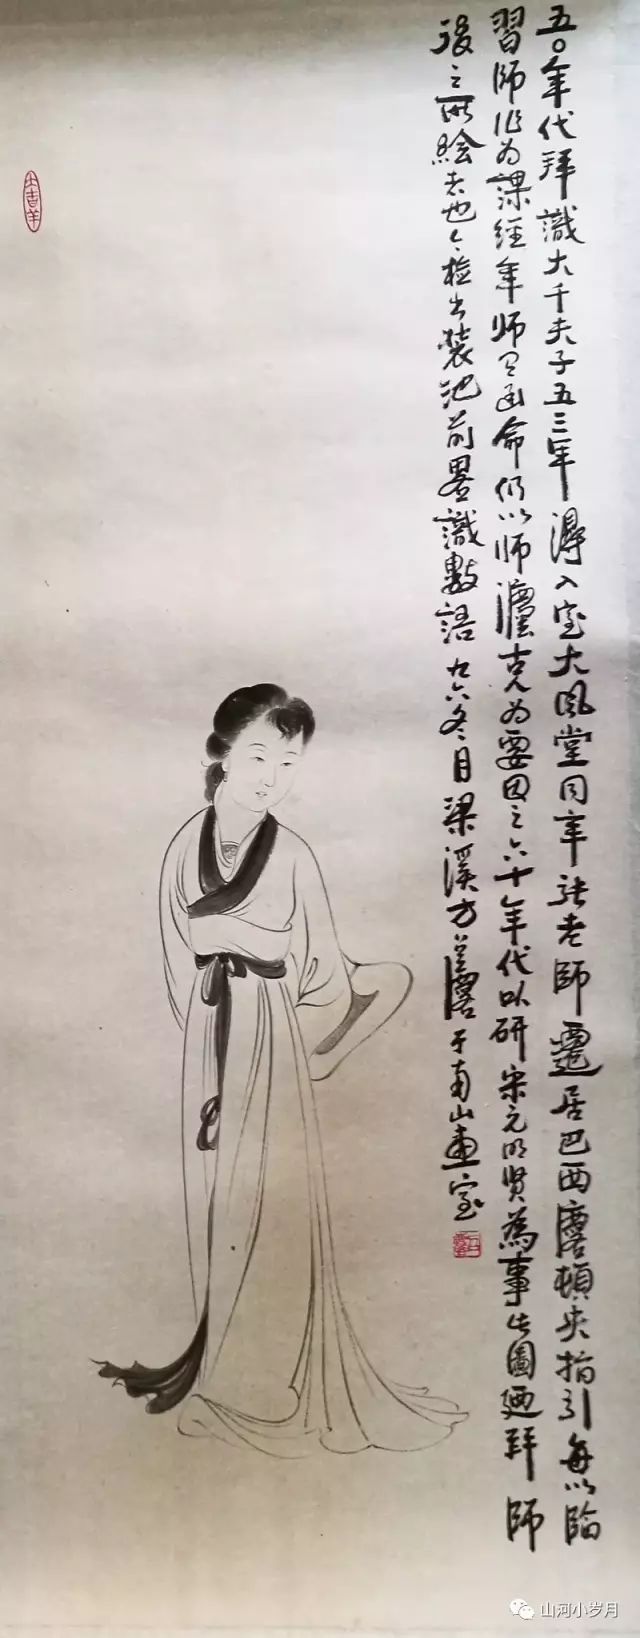 五〇年代拜識大千夫子五三年得入室大風堂同年張老師遷居巴西麐頓失指引每以臨
習師作為課經年師有函命仍以師瀍古為要因之六十年代以研宋元明賢為事此圖廼拜師
後之所繪者也今檢出裝池前畧識數語九六冬月梁溪方召麐于南山畫室
大吉羊
山河小岁月